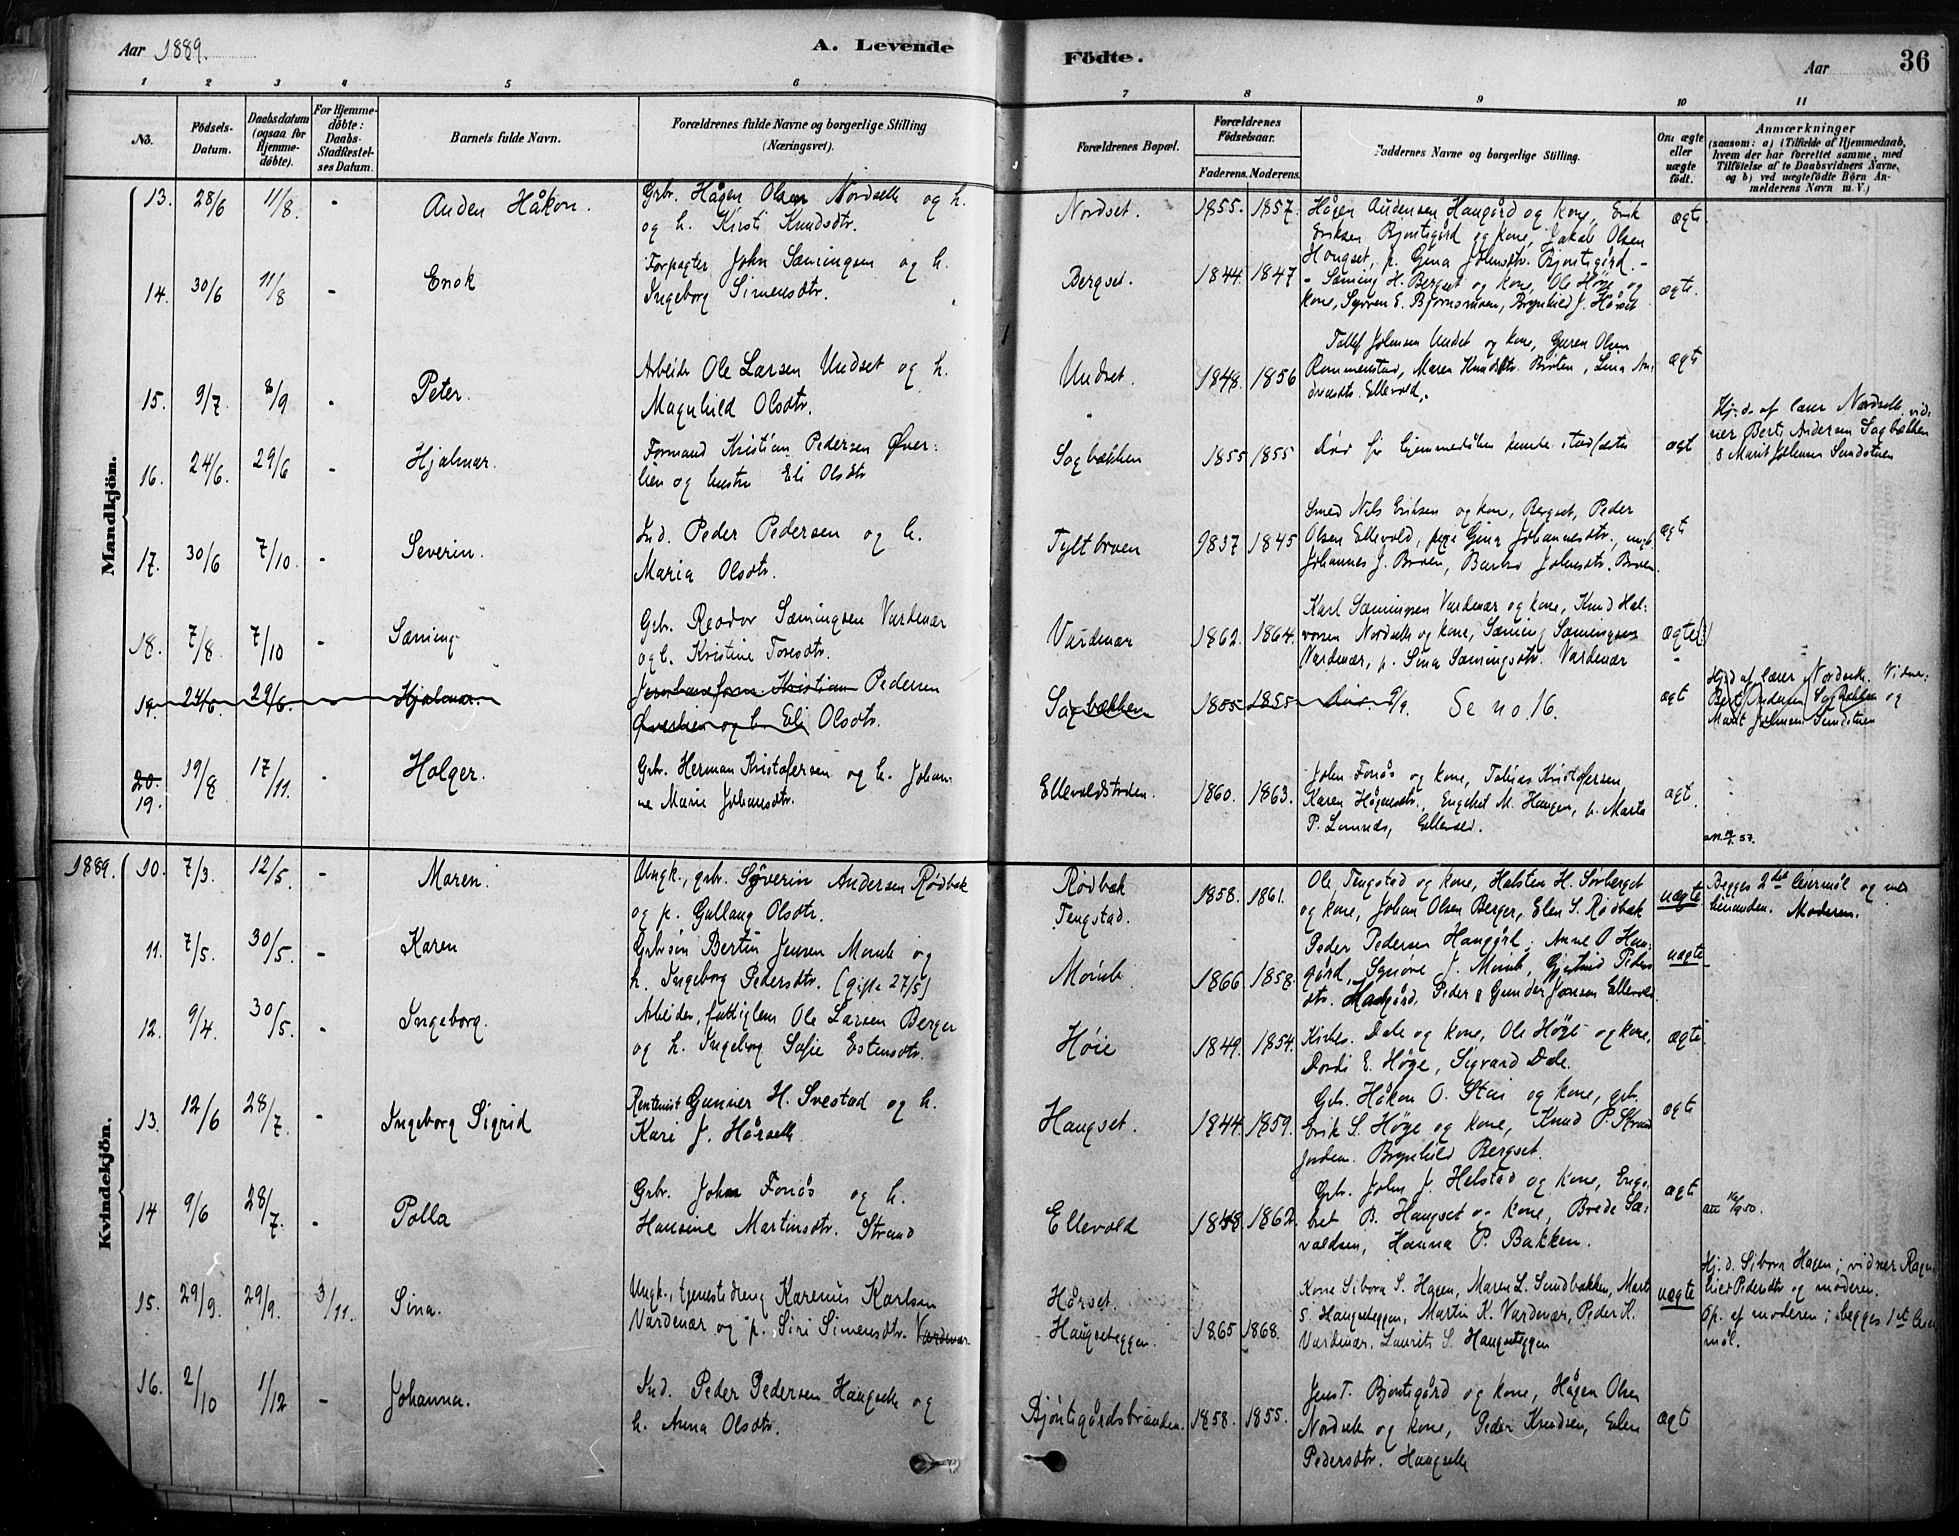 Aar 1889.
A. Levende
Födte.
Aar
36
1 2 3 4 5 6 7 8 9 10 11
No.
Födsels-Datum.
Daabsdatum (ogsaa for Hjemme-döbte).
For Hjemme-döbte: Daabs-Stadfæstel-ses Datum.
Barnets fulde Navn.
Forældrenes fulde Navne og borgerlige Stilling (Næringsvei).
Forældrenes Bopæl.
Forældrenes Födselsaar.
Faderens. Moderens.
Faddernes Navne og borgerlige Stilling.
Om ægte eller uægte födt.
Anmærkninger
(saasom: a) i Tilfælde af Hjemmedaab,
hvem der har forrettet samme, med
Tilföielse af to Daabsvidners Navne,
og b) ved uægtefödte Börn An-
melderens Navn m. V.)
Mandkjön.
13. 28/6 11/8. - Auden Håkon.
Grbr. Hågen Olsen Nordseth og h.
og h. Kirsti Knudsdtr.
Nordset. 1855. 1857.
Hågen Audensen Haugård og kone, Erik
Eriksen Bjontegård og kone, Jakob Olsen
Haugset, p. Gina Johnsdtr. Bjontegård. -
ægte
14. 30/6 11/8 - Enok
Forpagter John Sæmingsen og h.
Ingeborg Simensdtr.
Bergset. 1844. 1847
- Sæming H. Bergset og kone, Ole Høye og
kone, Syver E. Bjørnsmoen, Brynhild J. Hårset
ægte.
15. 9/7. 8/9 - Peter.
Arbeider Ole Larsen Undset og h.
Magnhild Olsdtr.
Undset. 1848. 1856
Tollef Johnsen Undset og kone, Guren Olsen
Rommenstad, Maren Knudsdtr. Bråten, Lina An-
dreasdtr. Ellevold.
ægte
16. 24/6. 29/6 - Hjalmar.
Formand Kristian Pedersen Øver-
lien og hustru Eli Olsdtr
Sagbækken 1855 1855
død før hjemmedåben kunde stadfæstes
ægte
Hj. d. af lærer Nordseth. vid-
ner Bert Andersen Sagbækken
& Marit Johnsen Sundstuen
17. 30/6 7/10. - Severin.
Ind. Peder Pedersen og h.
Maria Olsdtr.
Tyltbroen 1837. 1845
Smed Nils Eriksen og kone, Bergset, Peder
Olsen Ellevold, pige Gina Johannesdtr., ungk.
Johannes J. Broen, Barbro Johnsdtr. Broen.
ægte
18. 7/8. 7/10 - Sæming
Gbr. Reodor Sæmingsen Vardenær
og h. Kristine Toresdtr.
Vardenær 1862. 1864.
Karl Sæmingsen Vardenær og kone, Knud Hal-
vorsen Nordseth og kone, Sæming Sæmingsen
Vardenær, p. Sina Sæmingsdtr. Vardenær
ægte
19. 24/6. 29/6. - Hjalmar.
Jernbaneform. Kristian Pedersen
Øverlien og h. Eli Olsdtr.
Sagbækken 1855 1855 død 9/9. Se no 16.
ægt
Hj. d. af lærer Nordseth. Vidner:
Bert Andersen Sagbækken og
Marit Johnsen Sundstuen
20. 19. 19/8 17/11. - Holger.
Gbr. Herman Kristofersen og h. Johan-
ne Marie Johansdtr.
Ellevoldstrøen. 1860. 1863.
John Fonås og kone, Tobias Kristofersen,
Karen Hågensdtr., Engebret M. Haugen, p. Marte
P. Lomnæs, Ellevold.
ægt.
Kvindekjön.
1889. 10. 7/3. 12/5. - Maren.
Ungk., grbr. Severin Andersen Rødbæk
og p. Gullaug Olsdtr.
Rødbæk
Tengstad. 1858. 1861.
Ole Tengstad og kone, Halsten H. Sørberget
og kone, Johan Olsen Berger, Elen S. Rødbæk
uægte
Begges 2det leiermål og med
hinanden. Moderen.
11. 7/5. 30/5. - Karen
Grbrsøn Bertin Jensen Morseth og
h. Ingeborg Pedersdtr. (gifte 27/5)
1866 1858.
Peder Pedersen Haugård, Anne O. Hau-
uægte
12. 9/4. 30/5. - Ingeborg.
Arbeider, fattiglem Ole Larsen Berger
og h. Ingeborg Sofie Estensdtr.
Høie 1849. 1854.
Kirkes. Dale og kone, Ole Høye og kone,
Dordi E. Høye, Sigvard Dale.
ægte
13. 12/6 28/7. - Ingeborg Sigrid
Rentenist Gunner H. Svestad og h.
Kari J. Hårseth
Haugset. 1844. 1859.
Gbr. Håkon O. Stai og kone, grb.
Erik S. Høye og kone, Knud P. Strand
jorden. Brynhild Bergset.
ægte
14 9/6 28/7. - Polla
Grbr. John Fonås og h.
Hansine Martinsdtr. Strand
Ellevold 1858 1862.
Grb. John J. Helstad og kone, Enge-
bret B. Haugset og kone, Brede Sæ-
valdsen, Hanna P. Bakken.
ægte
15. 29/9. 29/9. 3/11. Sina.
Ungk., tjenestedreng Karenus Karlsen
Vardenær og p. Siri Simensdtr. Vardenær.
Hårset.
Haugseteggen. 1865 1868.
Kone Sibora S. Hagen, Maren L. Sundbakken, Marte
S. Haugseteggen, Martin K. Vardenær, Peder K.
Vardenær, Laurits S. Haugseteggen
uægte
Hj. d. Sibora Hagen; vidner Ragn-
hild Pedersdtr og moderen.
Op. af moderen; begges 1ste leier-
mål.
16. 2/10 1/12 - Johanna.
Ind. Peder Pedersen Haugseth og
h. Anna Olsdtr.
Bjøntegårdsbråten. 1858. 1855.
Jens T. Bjontegård og kone, Hågen Olsen
Nordseth og kone, Peder Knudsen, Elen
Pedersdtr. Haugseth
ægt